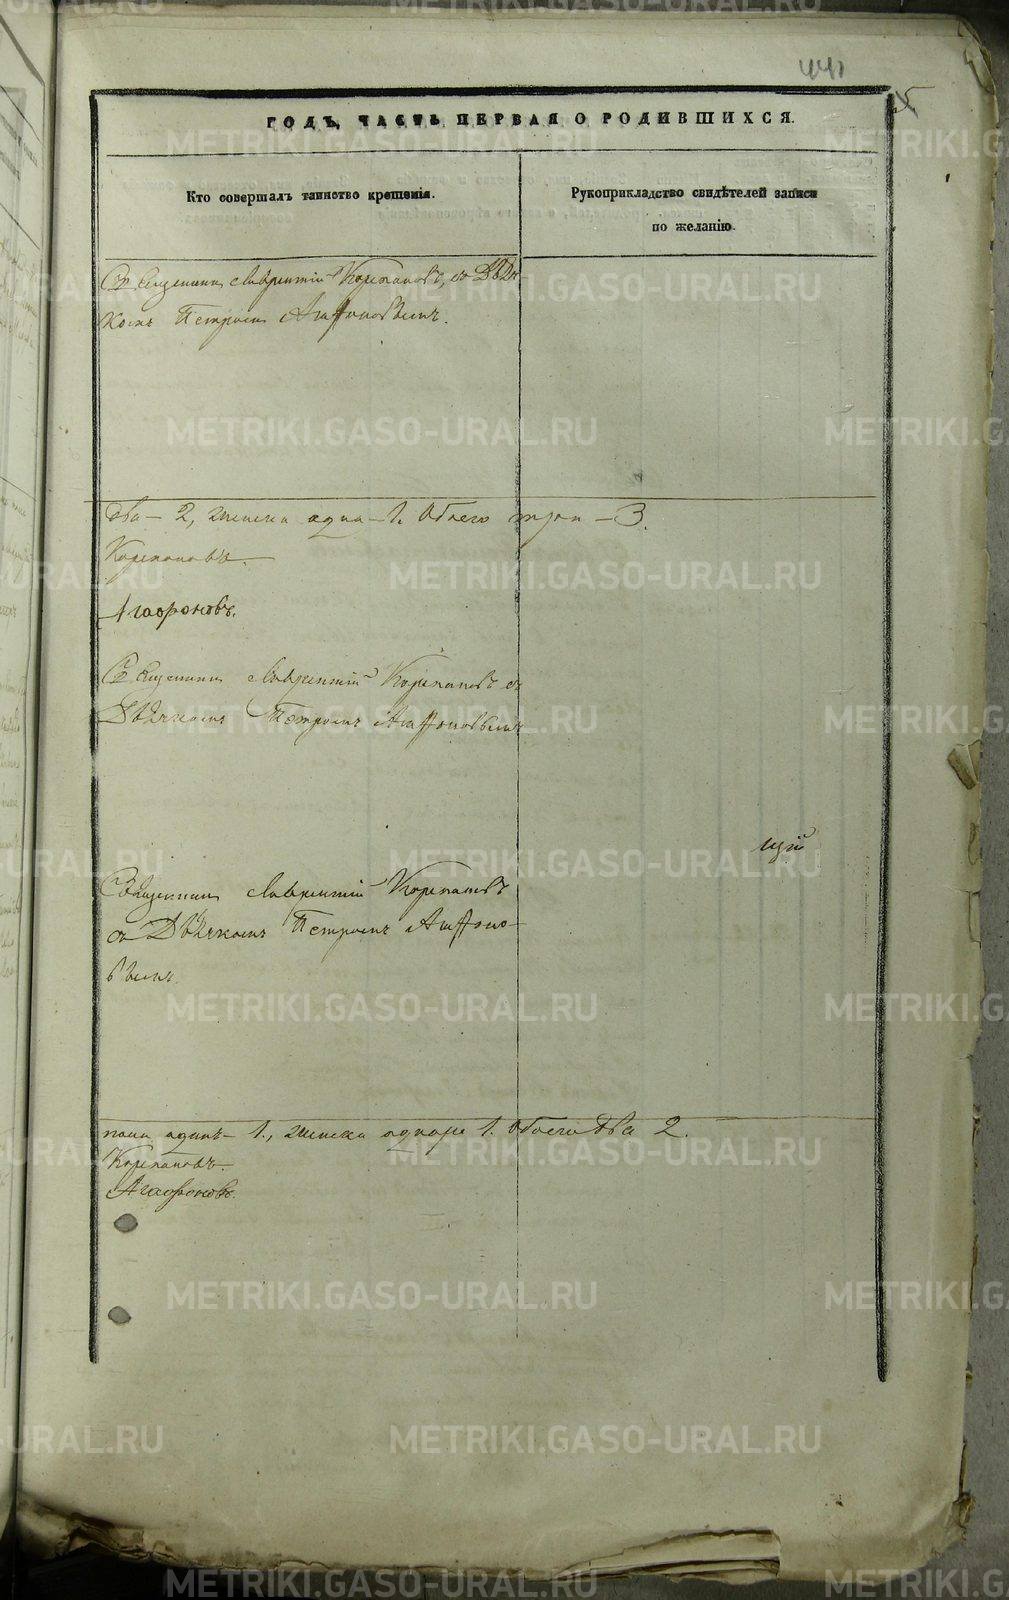 441
ГОДЪ, ЧАСТЬ ПЕРВАЯ О РОДИВШИХСЯ.
Кто совершалъ таинство крещенія.
Рукоприкладство свидѣтелей записи
по желанію.
Священникъ Лаврентій Корепановъ, съ Дьяч
комъ Петромъ Агафоновымъ.
два – 2, женска одна – 1. Обоего три – 3.
Корепановъ.
Агафоновъ.
Священникъ Лаврентій Корепановъ съ
Дьячкомъ Петромъ Агафоновымъ
щій
Священникъ Лаврентій Корепановъ
съ Дьячкомъ Петромъ Агафоно-
вымъ.
пола одинъ – 1., женска 1. Обоего два 2.
Корепановъ.
Агафоновъ.
METRIKI.GASO-URAL.RU